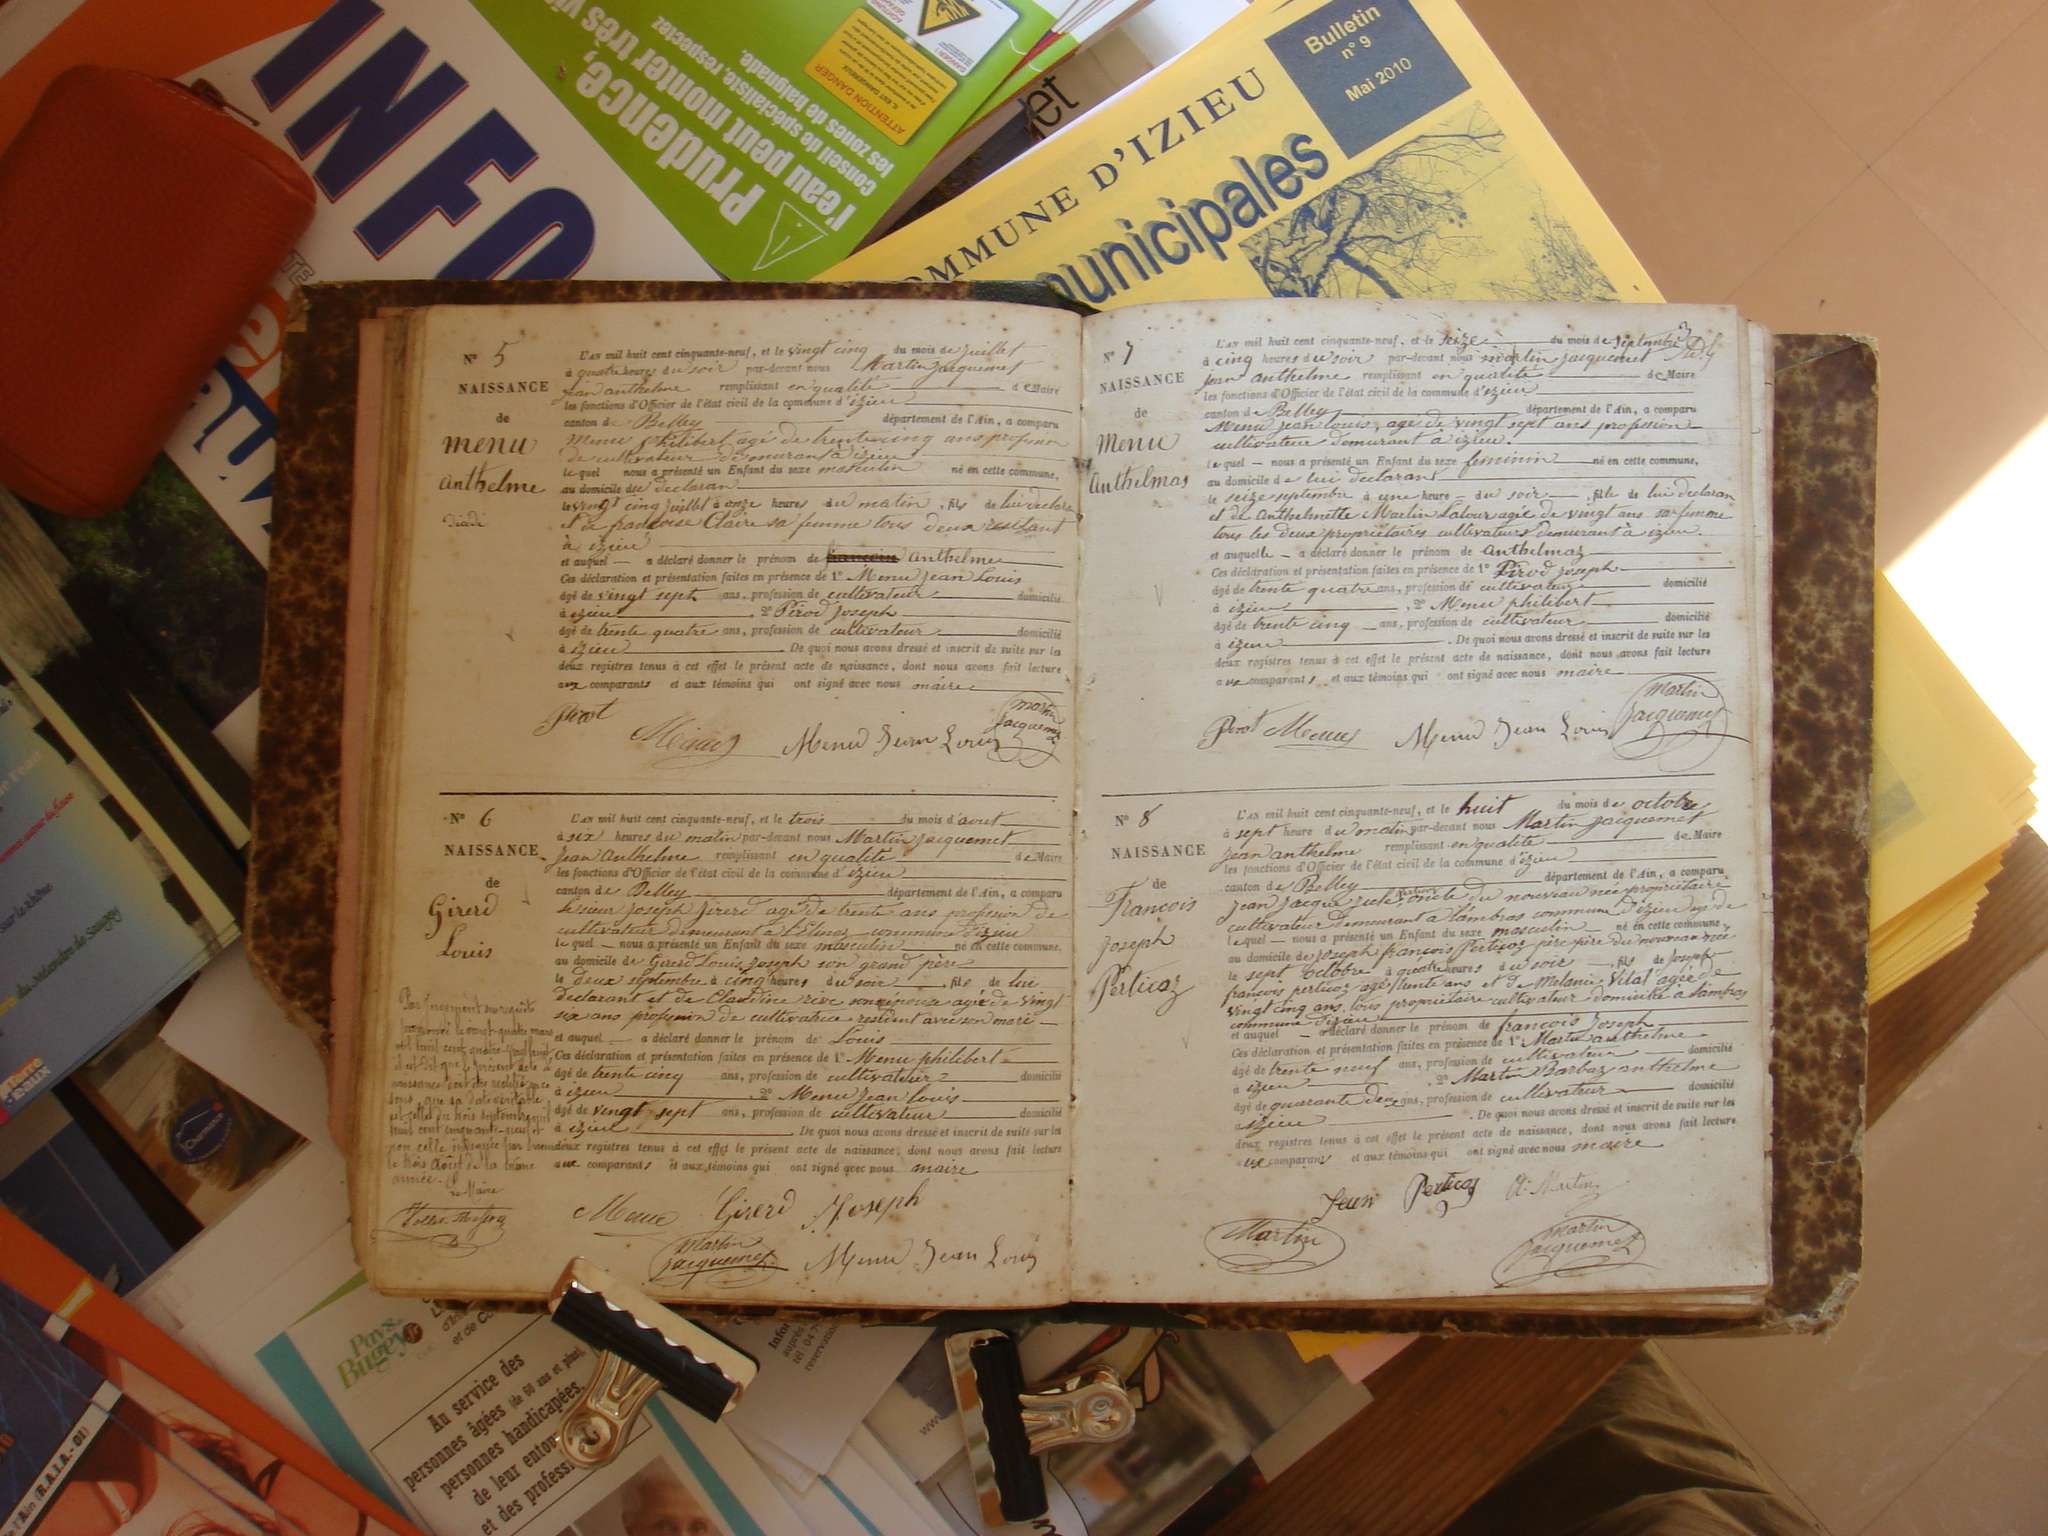 INFO
Prudence,
l'eau peut monter très vi
conseil de spécialiste, respectez
les zones de baignade.
ATTENTION DANGER
Bulletin
n° 9
Mai 2010
OMMUNE D'IZIEU
municipales
N° 5
NAISSANCE
de
menu
anthelme
L'AN mil huit cent cinquante-neuf, et le vingt cinq du mois de juillet
à quatre heures du soir par-devant nous Martin jacquemet
jean anthelme remplissant en qualité de Maire
les fonctions d'Officier de l'état civil de la commune d'izieu
canton de Belley département de l'Ain, a comparu
Menu philibert agé de trente cinq ans profession
de cultivateur demeurant à izieu
lequel nous a présenté un Enfant du sexe masculin né en cette commune,
au domicile de declaran
le vingt cinq juillet à onze heures du matin, fils de lui declara
et de francoise Claire sa femme tous deux residant
à izieu
et auquel a déclaré donner le prénom de anthelme
Ces déclaration et présentation faites en présence de 1° Menu jean Louis
âgé de vingt sept ans, profession de cultivateur domicilié
à izieu, 2° Pirod joseph
âgé de trente quatre ans, profession de cultivateur domicilié
à izieu. De quoi nous avons dressé et inscrit de suite sur les
deux registres tenus à cet effet le présent acte de naissance, dont nous avons fait lecture
aux comparants et aux témoins qui ont signé avec nous maire
Pirot
Menu Jean Louis
martin
jacquemet
N° 6
NAISSANCE
de
Girerd
Louis
L'AN mil huit cent cinquante-neuf, et le trois du mois d'aout
à six heures du matin par-devant nous Martin jacquemet
jean anthelme remplissant en qualité de Maire
les fonctions d'Officier de l'état civil de la commune d'izieu
canton de Belley département de l'Ain, a comparu
Le sieur joseph jirerd agé de trente ans profession de
cultivateur demeurant a commune d'izieu
lequel nous a présenté un Enfant du sexe masculin né en cette commune,
au domicile de Girerd Louis joseph son grand père
le deux septembre à cinq heures du soir, fils de lui
declarant et de Claudine rive son épouse agé de vingt
six ans profession de cultivatrice resident avec son mari
et auquel a déclaré donner le prénom de Louis
Ces déclaration et présentation faites en présence de 1° Menu philibert
âgé de trente cinq ans, profession de cultivateur domicilié
à izieu, 2° Menu jean louis
âgé de vingt sept ans, profession de cultivateur domicilié
à izieu. De quoi nous avons dressé et inscrit de suite sur les
deux registres tenus à cet effet le présent acte de naissance, dont nous avons fait lecture
aux comparants et aux témoins qui ont signé avec nous maire
Par jugement sur requête
le vingt-quatre mars
mil huit cent quatre-vingt
il est dit que le présent acte de
naissance doit être rectifié en ce
sens, que sa date véritable
est celle du trois septembre mil
huit cent cinquante-neuf et
non celle indiquée par erreur
le trois Août de la même
année.
Le Maire
Menu Girerd Joseph
martin
jacquemet
Menu Jean Louis
N° 7
NAISSANCE
de
Menu
Anthelmaz
L'AN mil huit cent cinquante-neuf, et le seize du mois de septembre
à cinq heures du soir par-devant nous martin jacquemet
jean anthelme remplissant en qualité de Maire
les fonctions d'Officier de l'état civil de la commune d'izieu
canton de Belley département de l'Ain, a comparu
Menu jean louis, agé de vingt sept ans profession
cultivateur demurant à izieu.
lequel nous a présenté un Enfant du sexe feminin né en cette commune,
au domicile de lui declarans
le seize septembre à une heure du soir, fille de lui declaran
et de anthelmette Martin Latour agée de vingt ans sa femme
tous les deux propriétaires cultivateurs demurant à izieu.
et auquelle a déclaré donner le prénom de anthelmaz
Ces déclaration et présentation faites en présence de 1° Pirod joseph
âgé de trente quatre ans, profession de cultivateur domicilié
à izieu, 2° Menu philibert
âgé de trente cinq ans, profession de cultivateur domicilié
à izieu. De quoi nous avons dressé et inscrit de suite sur les
deux registres tenus à cet effet le présent acte de naissance, dont nous avons fait lecture
aux comparants et aux témoins qui ont signé avec nous maire
Pirot Menu Menu Jean Louis
martin
jacquemet
N° 8
NAISSANCE
de
François
Joseph
Perticoz
L'AN mil huit cent cinquante-neuf, et le huit du mois de octobre
à sept heure du matin par-devant nous Martin jacquemet
jean anthelme remplissant en qualité de Maire
les fonctions d'Officier de l'état civil de la commune d'izieu
canton de Belley département de l'Ain, a comparu
jean jacque oncle du nouveau née propriétaire
cultivateur demeurant a Lambras commune d'izieu
lequel nous a présenté un Enfant du sexe masculin né en cette commune,
au domicile de joseph françois Perticoz père du nouveau née
le sept octobre à quatre heures du soir, fils de joseph
françois perticoz agé trente ans et de Melanie Vital agée de
vingt cinq ans, tous propriétaire cultivateur domicilié a Lambras
commune d'izieu
et auquel a déclaré donner le prénom de françois Joseph
Ces déclaration et présentation faites en présence de 1° Martin anthelme
âgé de trente neuf ans, profession de cultivateur domicilié
à izieu, 2° Martin Barbaz anthelme
âgé de quarante deux ans, profession de cultivateur domicilié
a izieu. De quoi nous avons dressé et inscrit de suite sur les
deux registres tenus à cet effet le présent acte de naissance, dont nous avons fait lecture
aux comparans et aux témoins qui ont signé avec nous maire
Jean Perticoz A. Martin
Martin
martin
jacquemet
Pays
Bugey
Au service des
personnes âgées (de 60 ans et plus),
personnes handicapées,
de leur entou
et des profess
l'Ain (R.A.I.A.- 01)